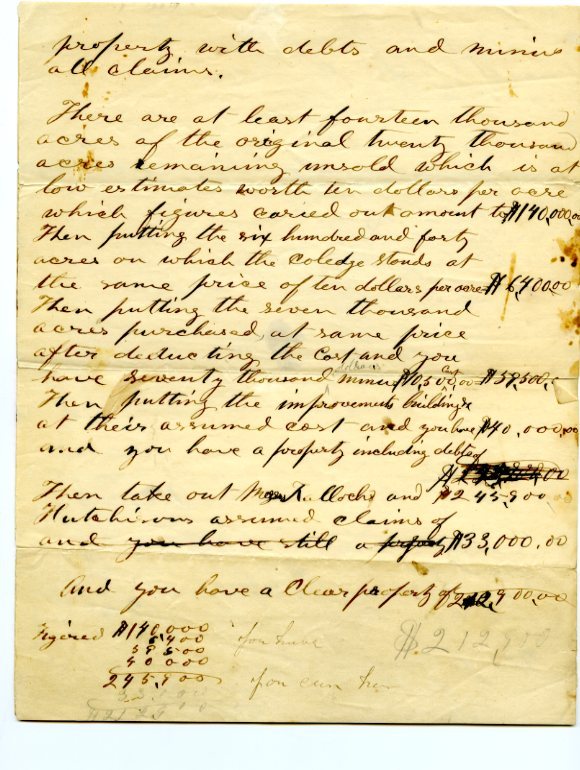 property with debts and minus
all claims.
There are at least fourteen thousand
acres of the original twenty thousand
acres remaining unsold which is at
low estimates worth ten dollars per acre
which figures caried out amount to $140,000,00
Then putting the six hundred and forty
acres on which the coledge stands at
the same price of ten dollars per acre $6,400.00
Then putting the seven thousand
acres purchased, at same price
after deducting the cost and you
have seventy thousand minus $10,500,00 = $59,500,
Then putting the improvements buildings
at their assumed cost and you have $40,000,00
and you have a property including debts of
$245,900.00
Then take out and
Hutchisons assumed claims of
and you have still a property $33,000.00
And you have a Clear property of 212,900,00
Figered $140,000 you have $212,900
6,400
59,500
40000
245,900 you can